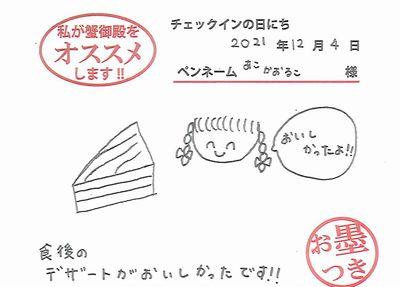 私が蟹御殿を
オススメ
します!!
チェックインの日にち
2021年12月4日
ペンネーム あこかおるこ 様
おいし
かったよ!!
食後の
デザートがおいしかったです!!
お墨
つき